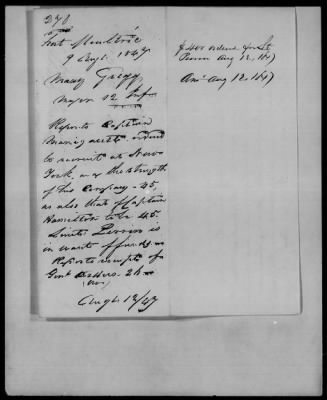 270
Fort Moultrie
9 Augt. 1847
Maxcy Gregg,
Major 12 Inf
Reports Captain
Manigault ordered
to recruit at New
York, and the strength
of his Company - 45,
as also that of Captain
Hamilton to be 45.
Lieut. Perrin is
in want of funds
Reports receipt of
Genl Orders. 26
Augt. 12/47
$400 ordered for Lt.
Perrin Aug 12, 1847
Ansd Aug 12, 1847